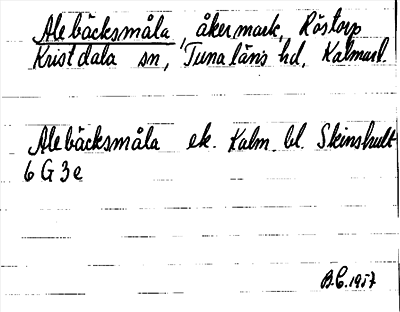 Alebäcksmåla, åkermark, Röstorp
Kristdala sn, Tunaläns hd, Kalmarl.
Alebäcksmåla ek. Kalm. bl. Skinshult
6 G 3e
B.C. 1957